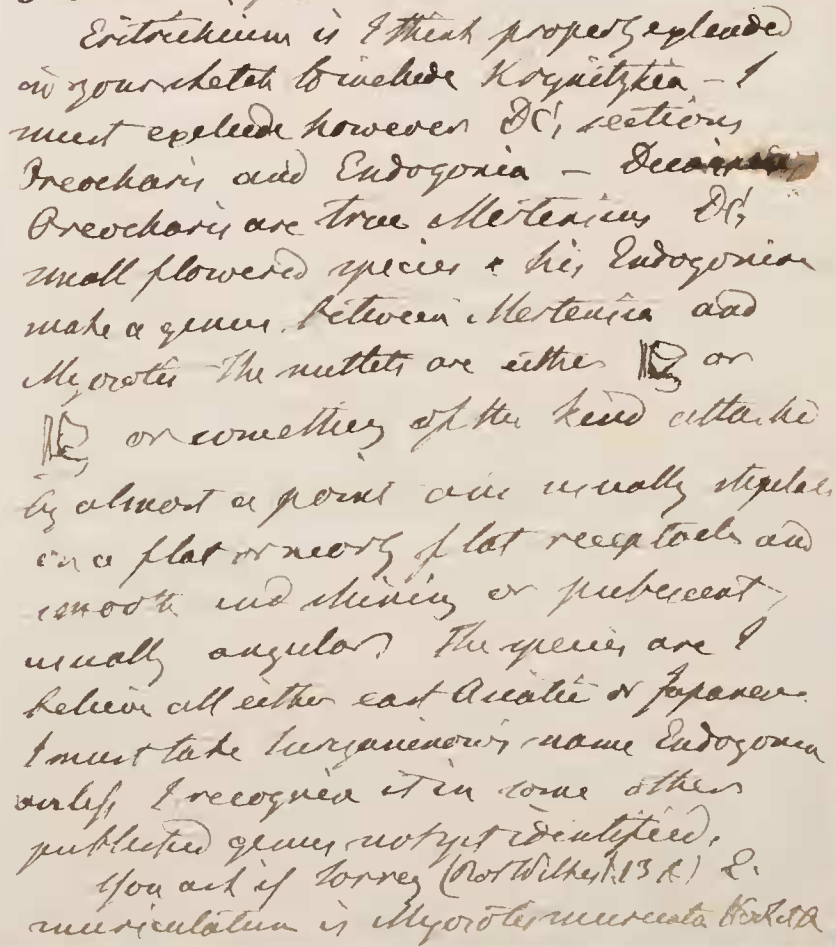 Eritrichium is I think properly extended
in your sketch to include Krynitzkia – I
must exclude however DC's sections
Oreocharis and Endogonia –
Oreocharis are true Mertensias DC's
small flowered species & his Endogonia
make a genus between Mertensia and
Myosotis The nutlets are either or
or something of the kind attached
by almost a point and usually stipitate
on a flat or nearly flat receptacle and
smooth and shining or pubescent,
usually angular. The species are I
believe all either east Asiatic or Japanese.
I must take Turczaninow's name Endogonia
unless I recognise it in some other
published genus not yet identified.
You ask if Torrey (Bot Wilkes t. 13 A) E.
muriculatum is Myosotis muricata Hook & A